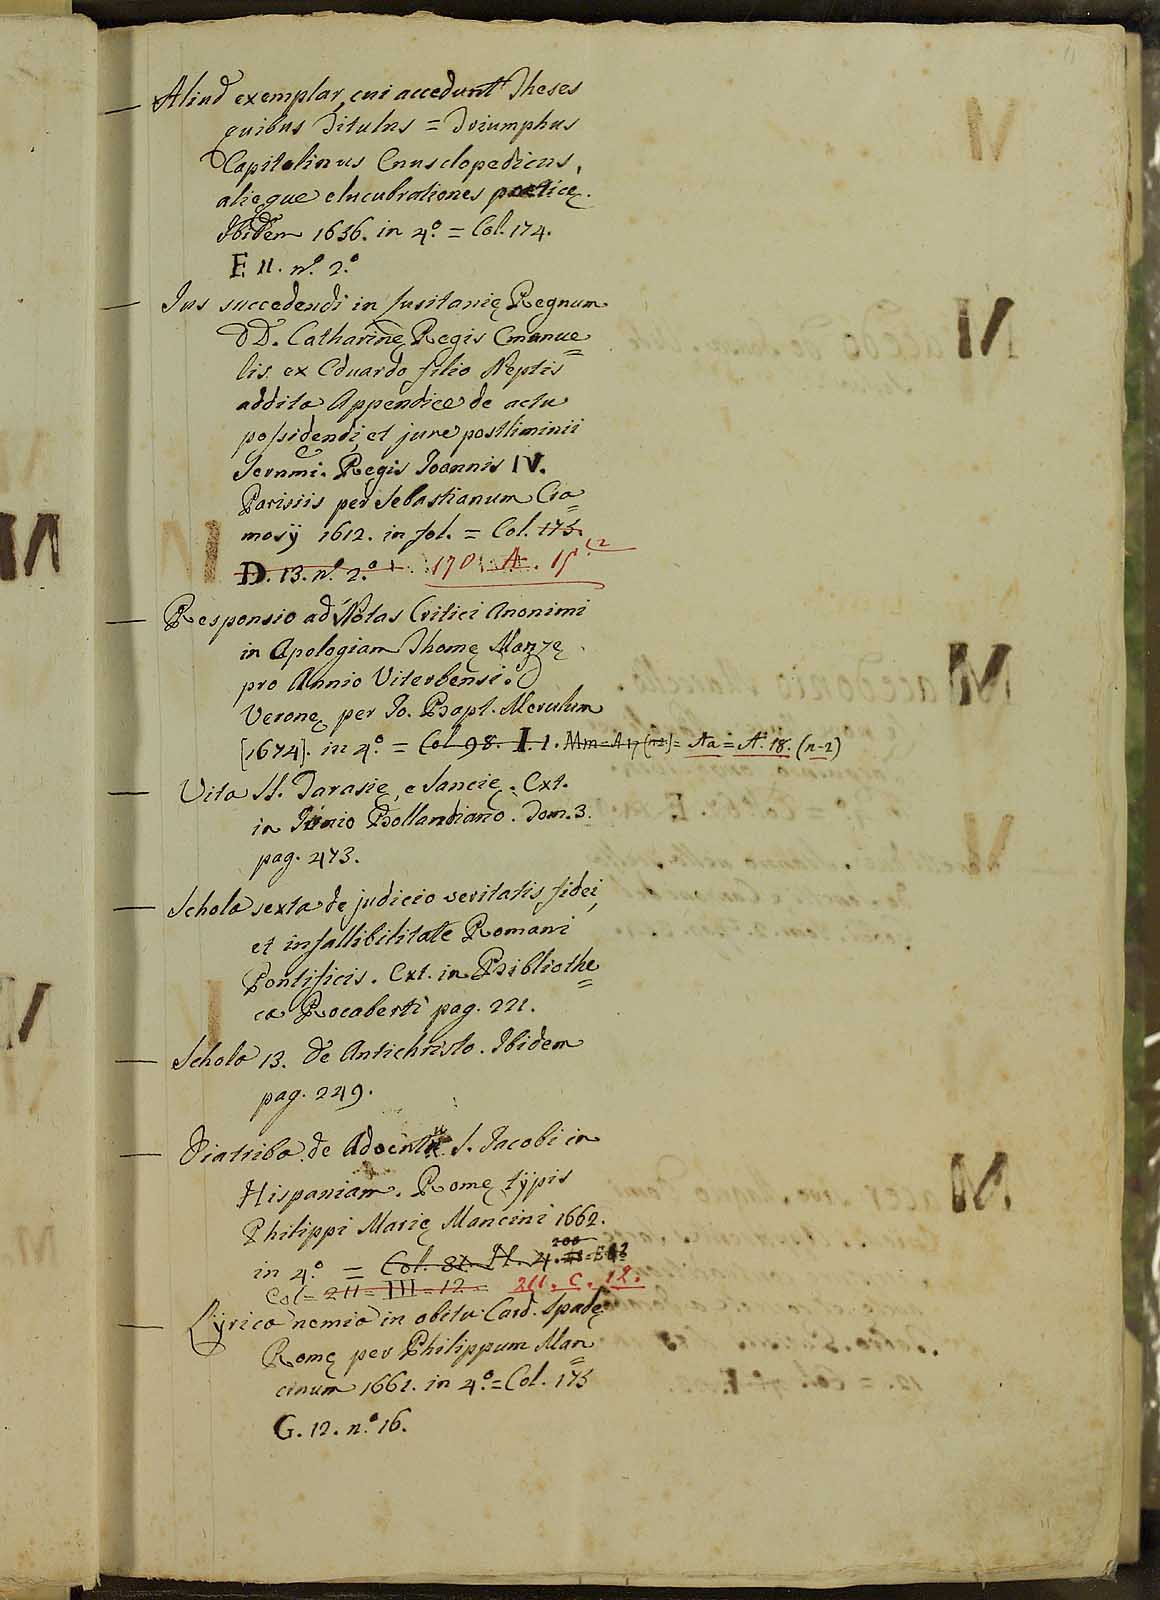 — Aliud exemplar, cui accedunt Theses
quibus Titulus = Triumphus
Capitolinus Ennsclopedicus,
alięque elucubrationes poeticę.
Ibidem 1636. in 4.º = Col. 174.
F. 11. n.º 2.º
— Jus succedendi in Lusitanię Regnum
DD. Catharinę Regis Emanue=
lis ex Eduardo filio Neptis
addita Appendice de actu
possidendi, et jure postliminii
Sernmi. Regis Joannis IV.
Parisiis per Sebastianum Cra=
mosÿ 1612. in fol. = Col. 175.
D. 13. n.º 2.º 170. A. 15
— Responsio ad Notas Critici Anonimi
in Apologiam Thomę Mazzę
pro Annio Viterbensi.
Veronę per Jo. Bapt. Merulum
[1674]. in 4.º = Col. 98. I. 1. Mm=A 17 (n2)= Aa = A. 18. (n-2)
— Vita SS. Tarasię, e Sancię. Ext.
in Junio Bollandiano. Tom. 3.
pag. 473.
— Schola sexta de judicio veritatis fidei,
et infallibilitate Romani
Pontificis. Ext. in Bibliothe=
ca Rocaberti pag. 221.
— Schola 13. de Antichristo. Ibidem
pag. 249.
— Diatriba de Adventu S. Jacobi in
Hispaniam. Romę typis
Philippi Marię Mancini 1662.
in 4.º = Col. 81. H. 4.
Col = 211 = III = 12. 211. C. 12.
— Lÿrica nemia in obitu Card. Spadę
Romę per Philippum Man=
cinum 1661. in 4.º = Col. 175
G. 12. n.º 16.